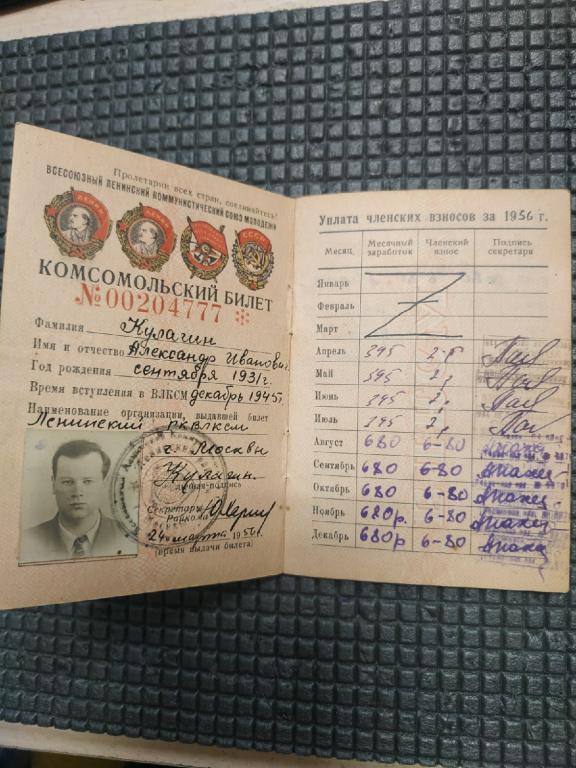 Пролетарии всех стран, соединяйтесь!
ВСЕСОЮЗНЫЙ ЛЕНИНСКИЙ КОММУНИСТИЧЕСКИЙ СОЮЗ МОЛОДЕЖИ
КОМСОМОЛЬСКИЙ БИЛЕТ
№ 00204777
Фамилия Кулагин
Имя и отчество Александр Иванович
Год рождения сентября 1931 г.
Время вступления в ВЛКСМ декабрь 1945 г.
Наименование организации, выдавшей билет
Ленинский РК ВЛКСМ
г. Москвы
Кулагин
Личная подпись
Секретарь
Райкома
24 марта 1956 г.
(время выдачи билета)
Уплата членских взносов за 1956 г.
Месяц Месячный заработок Членский взнос Подпись секретаря
Январь
Февраль
Март
Апрель 395
Май 595
Июнь 395
Июль 395
Август 680 6-80
Сентябрь 680 6-80
Октябрь 680 6-80
Ноябрь 680р. 6-80
Декабрь 680р 6-80